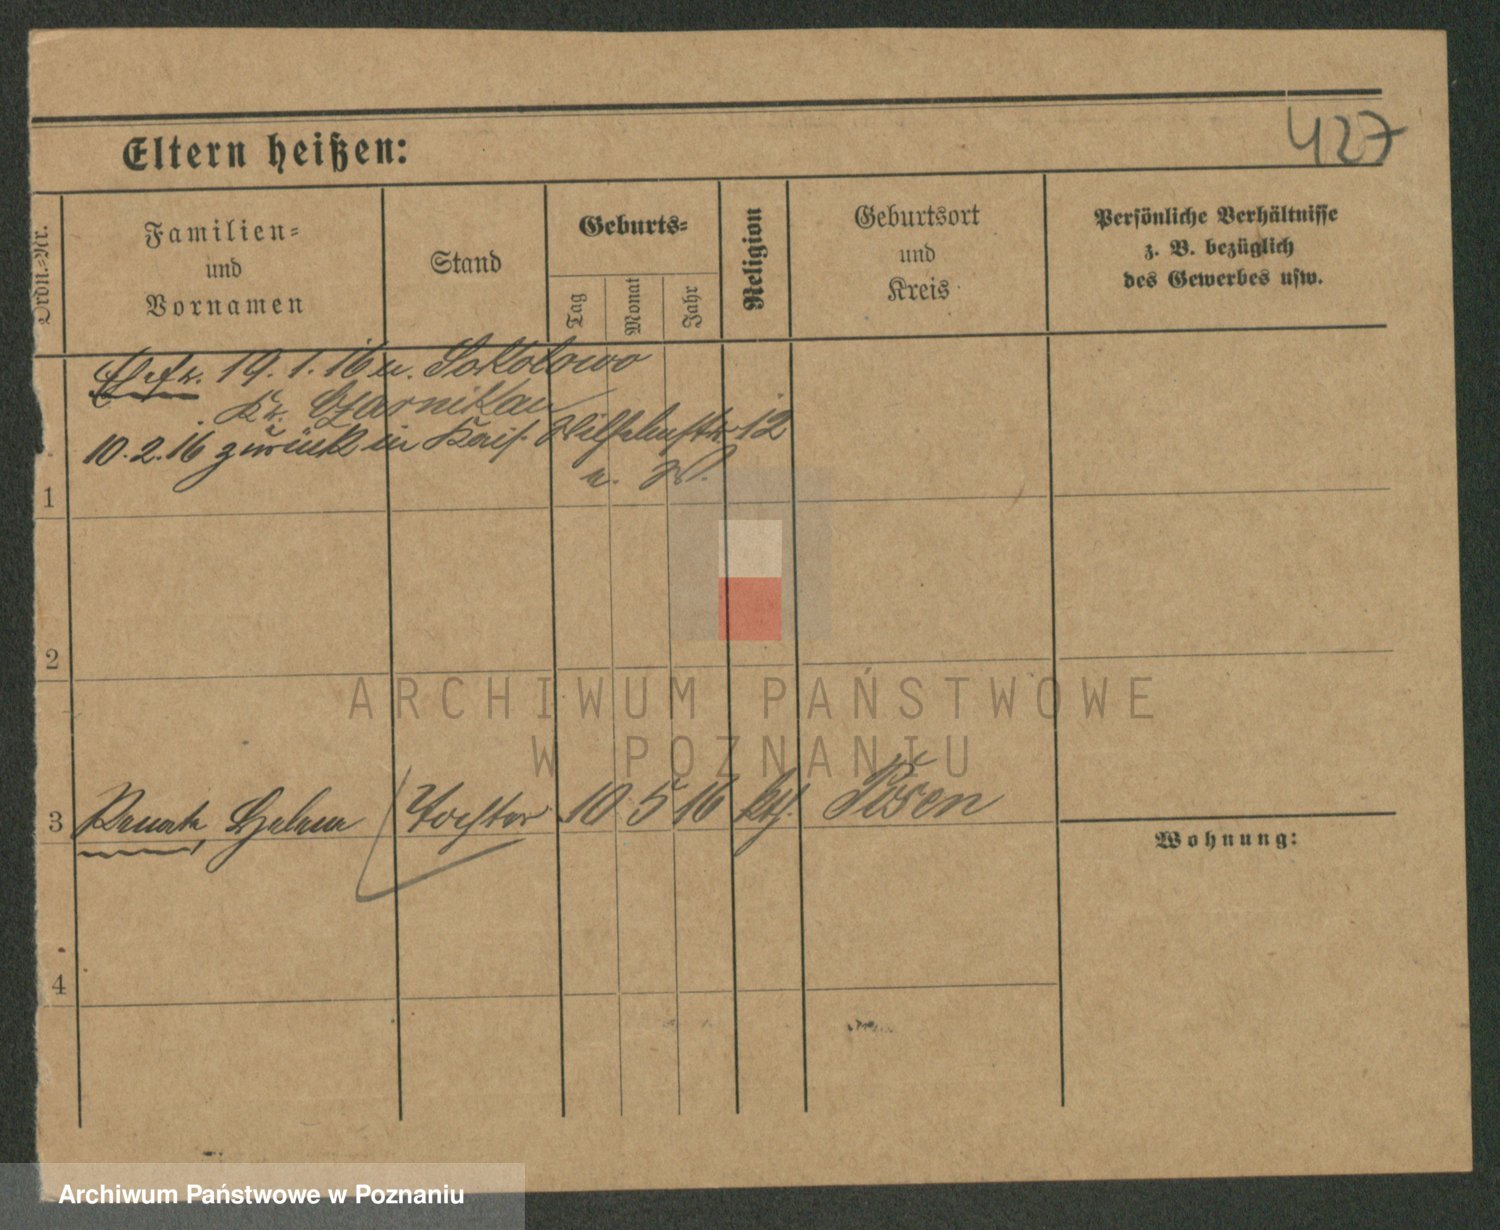 427
Eltern heißen:
Ordn.-Nr.
Familien-
und
Vornamen
Stand
Geburts-
Tag
Monat
Jahr
Religion
Geburtsort
und
Kreis
Persönliche Verhältnisse
z. B. bezüglich
des Gewerbes usw.
19.1.16 n. Sokolowo
Kr. Czarnikau
10.2.16 zurück in Kais. Wilhelmstr 12
1
2
ARCHIWUM PAŃSTWOWE
W POZNANIU
3 Renata Helene Tochter 10 5 16 kth. Posen
Wohnung:
4
Archiwum Państwowe w Poznaniu